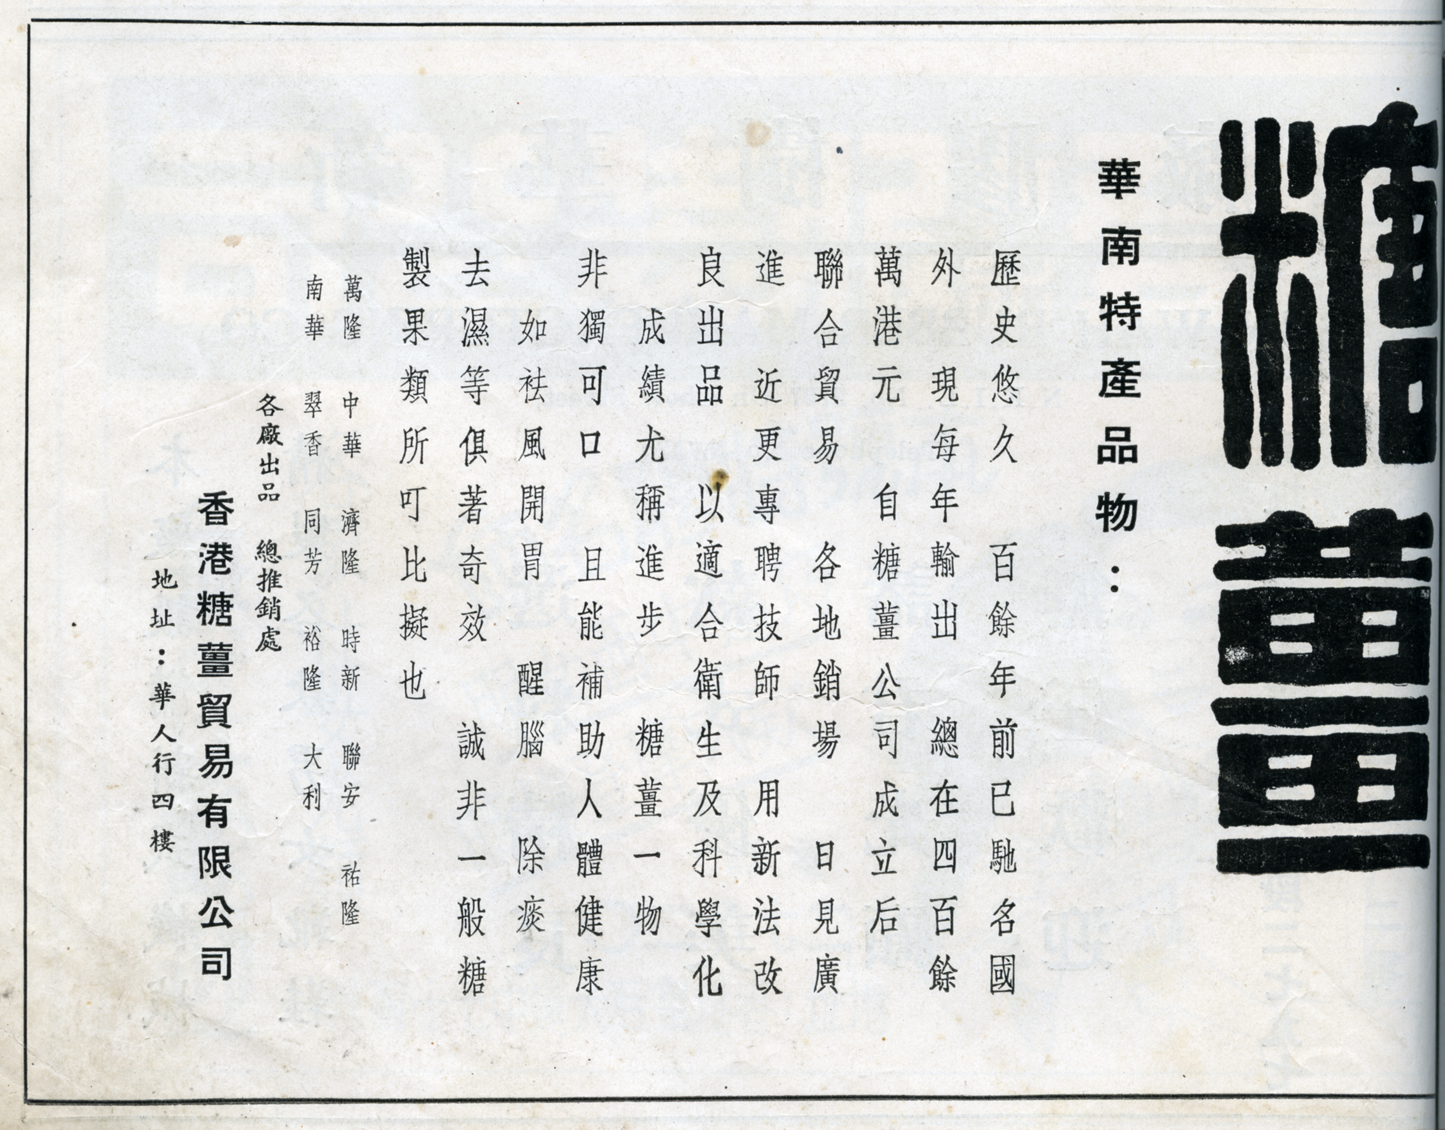 糖薑
華南特產品物：
歷史悠久　百餘年前已馳名國
外　現每年輸出　總在四百餘
萬港元　自糖薑公司成立后
聯合貿易　各地銷場　日見廣
進　近更專聘技師　用新法改
良出品　以適合衛生及科學化
　成績尤稱進步　糖薑一物
非獨可口　且能補助人體健康
　如祛風開胃　醒腦　除痰
去濕等俱著奇效　誠非一般糖
製果類所叮比擬也
萬隆　中華　濟隆　時新　聯安　祐隆
南華　翠香　同芳　裕隆　大利
各廠出品　總推銷處
香港糖薑貿易有限公司
地址：華人行四樓